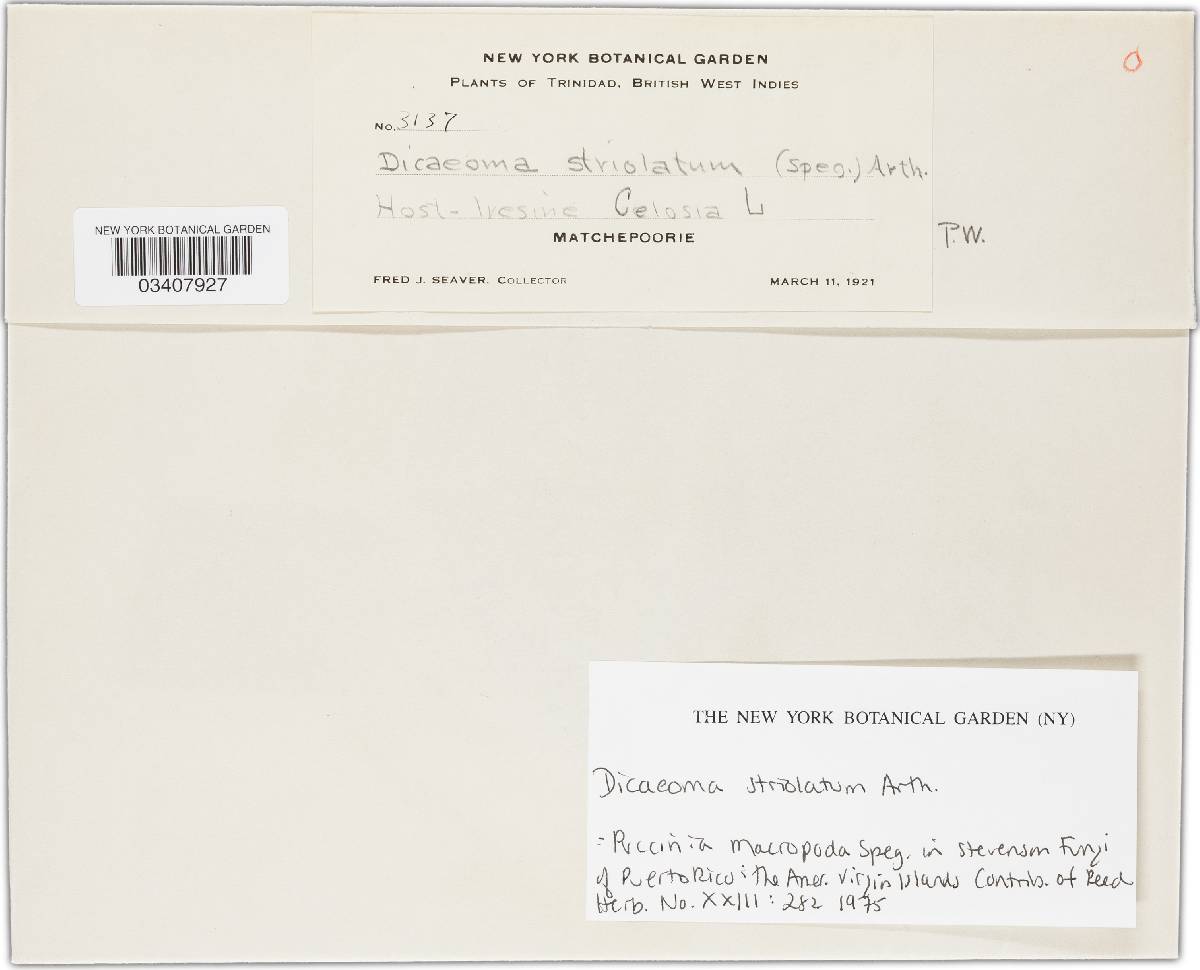 NEW YORK BOTANICAL GARDEN
PLANTS OF TRINIDAD, BRITISH WEST INDIES
No. 3137
Dicaeoma striolatum (Speg.) Arth.
Host - Iresine Celosia L
MATCHEPOORIE
FRED J. SEAVER, COLLECTOR MARCH 11, 1921
P.W.
NEW YORK BOTANICAL GARDEN
03407927
THE NEW YORK BOTANICAL GARDEN (NY)
Dicaeoma striolatum Arth.
= Puccinia macropoda Speg. in Stevenson Fungi
of Puerto Rico & the Amer. Virgin Islands Contrib. of Reed
Herb. No. XXIII: 282 1975